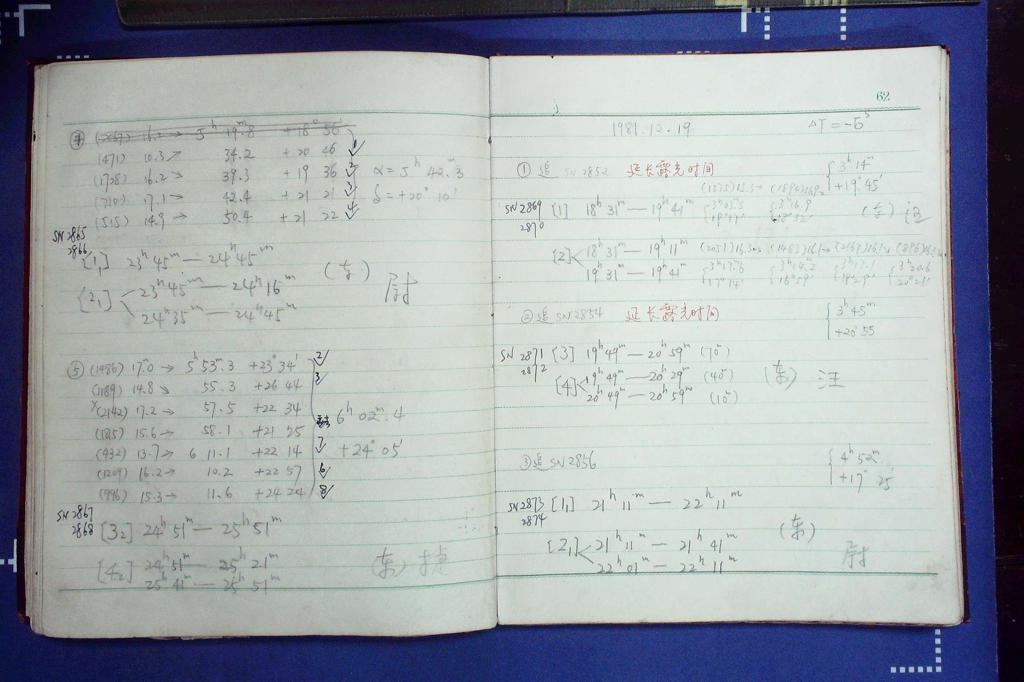 ④ (2069) 16.2→ 5ʰ 19ᵐ.8 +18° 56′
(471) 10.3↗ 34.2 +20 46
(1728) 16.2→ 39.3 +19 36
(710) 17.1→ 42.4 +21 21
(515) 14.9→ 50.4 +21 22
α=5ʰ 42ᵐ.3
δ=+20° 10′
SN 2865
2866
[1₁] 23ʰ45ᵐ—24ʰ45ᵐ
[2₁] 23ʰ45ᵐ—24ʰ16ᵐ
24ʰ35ᵐ—24ʰ45ᵐ
(东) 尉
⑤ (1486) 17.0→ 5ʰ53ᵐ.3 +23°34′
(1189) 14.8→ 55.3 +26 44
(2142) 17.2→ 57.5 +22 34
(1215) 15.6→ 58.1 +21 25
(432) 13.7→ 6 11.1 +22 14
(1209) 16.2→ 10.2 +22 57
(996) 15.3→ 11.6 +24 24
6ʰ02ᵐ.4
+24°05′
SN 2867
2868
[3₂] 24ʰ51ᵐ—25ʰ51ᵐ
[4₂] 24ʰ51ᵐ—25ʰ21ᵐ
25ʰ41ᵐ—25ʰ51ᵐ
(东)
62
1981.12.19 ΔT=-5ˢ
① 追 SN 2852 延长露光时间 3ʰ14ᵐ
+19°45′
SN 2869
2870
[1] 18ʰ31ᵐ—19ʰ41ᵐ
(东) 汪
[2] 18ʰ31ᵐ—19ʰ11ᵐ
19ʰ31ᵐ—19ʰ41ᵐ
② 追 SN 2854 延长露光时间 3ʰ45ᵐ
+20 55
SN 2871
2872
[3] 19ʰ49ᵐ—20ʰ59ᵐ (70ᵐ)
[4] 19ʰ49ᵐ—20ʰ29ᵐ (40ᵐ)
20ʰ49ᵐ—20ʰ59ᵐ (10ᵐ)
(东) 汪
③ 追 SN 2856 4ʰ52ᵐ
+17° 25
SN 2873
2874
[1₁] 21ʰ11ᵐ—22ʰ11ᵐ
[2₁] 21ʰ11ᵐ—21ʰ41ᵐ
22ʰ01ᵐ—22ʰ11ᵐ
(东) 尉